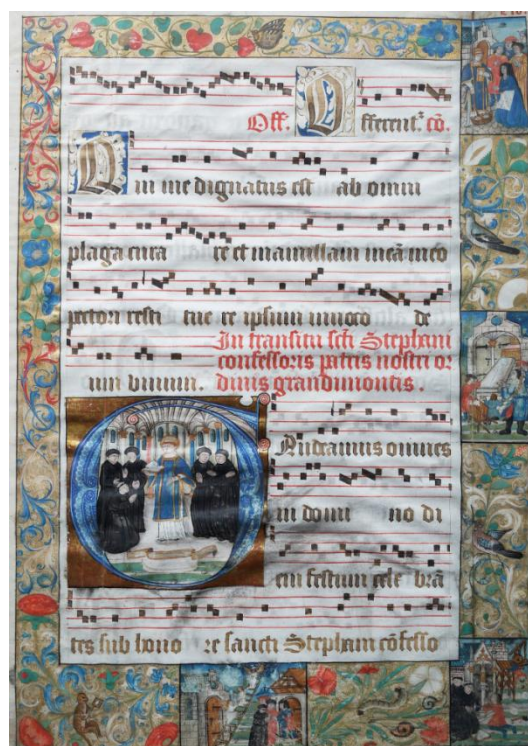 Off. Offerent^r. cō.
Qui me dignatus est ab omni
plaga cura re et mamillam meā meo
pectori resti tue re ipsum inuoco de
um viuum. In transitu scti Stephani
confessoris patris nostri or
dinis grandimontis.
Gaudeamus omnes
in domi no di
em festum cele brā
tes sub hono re sancti Stephani cōfesso